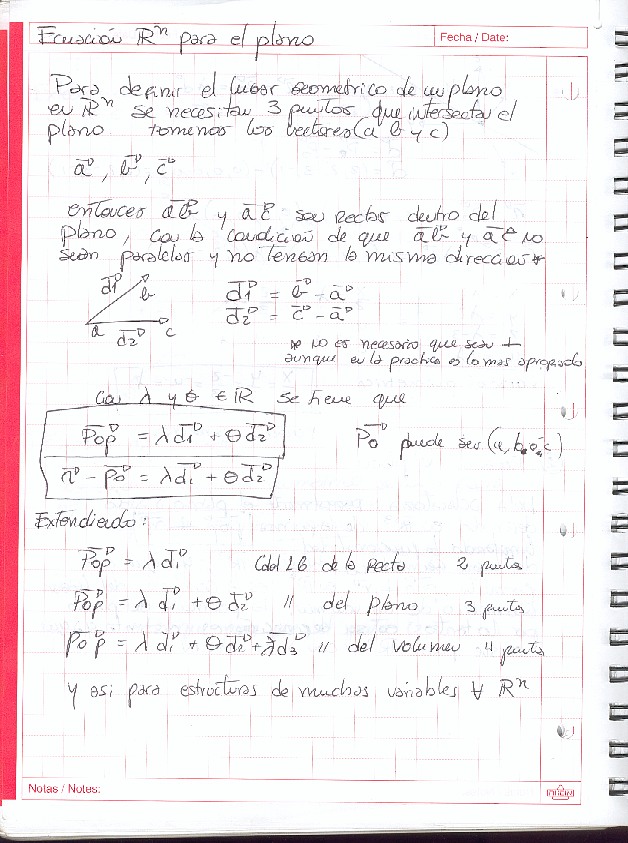 Ecuación ℝⁿ para el plano
Fecha / Date:
Para definir el lugar geometrico de un plano
en ℝⁿ se necesitan 3 puntos que intersectan el
plano tomemos los vectores (a b y c)
a⃗, b⃗, c⃗
entonces ab⃗ y ac⃗ son rectas dentro del
plano, con la condición de que ab⃗ y ac⃗ no
sean paralelos y no tengan la misma dirección *
d1⃗
b
a
d2⃗
c
d1⃗ = b⃗ - a⃗
d2⃗ = c⃗ - a⃗
* no es necesario que sean ⊥
aunque en la practica es lo mas apropiado
Con λ y θ ∈ ℝ se tiene que
P0p⃗ = λd1⃗ + θd2⃗
P0⃗ puede ser (a, b, o, c)
r⃗ - p0⃗ = λd1⃗ + θd2⃗
Extendiendo:
P0p⃗ = λd1⃗ LG de la recta 2 puntos
P0p⃗ = λd1⃗ + θd2⃗ // del plano 3 puntos
P0p⃗ = λd1⃗ + θd2⃗ + d3⃗ // del volumen 4 puntos
y asi para estructuras de muchas variables ∀ ℝⁿ
Notas / Notes: